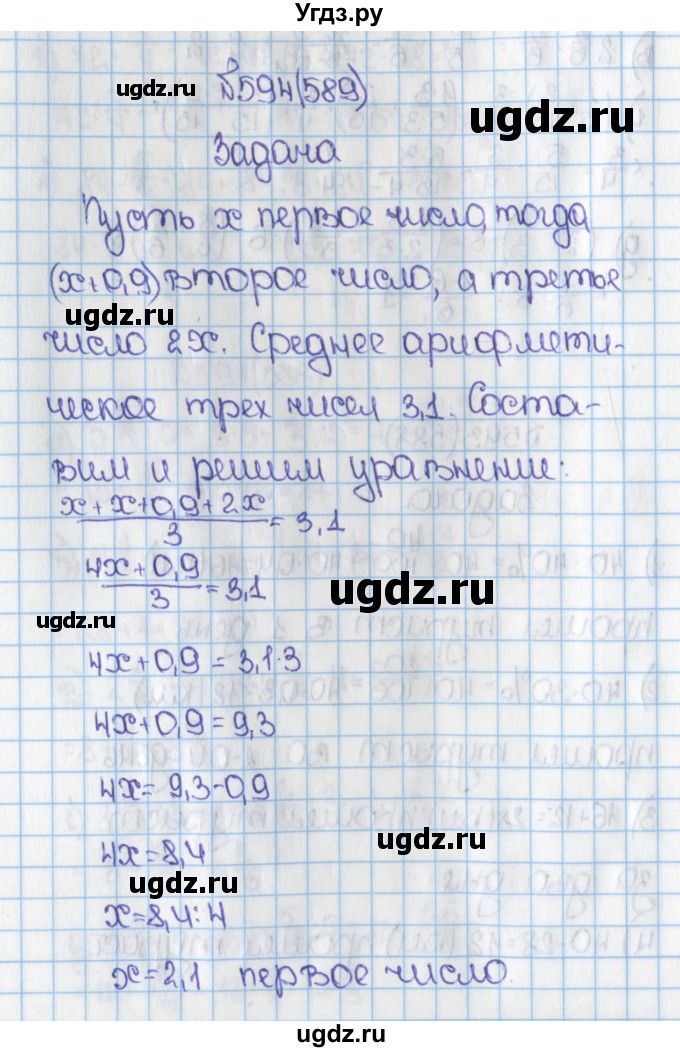 Угдз.ру
ugdz.ru
№594(589)
ugdz.ru
Задача
Пусть x первое число, тогда
(x+0,9) второе число, а третье
ugdz.ru
число 2x. Среднее арифмети-
ческое трех чисел 3,1. Соста-
вим и решим уравнение:
x+x+0,9+2x/3 = 3,1
4x+0,9/3 = 3,1
ugdz.ru
ugdz.ru
4x+0,9 = 3,1·3
4x+0,9 = 9,3
4x = 9,3-0,9
ugdz.ru
4x=8,4
ugdz.ru
x=8,4:4
x=2,1 первое число.
ugdz.ru